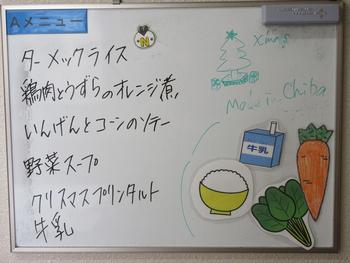 Aメニュー
ターメックライス
鶏肉とうずらのオレンジ煮
いんげんとコーンのソテー
野菜スープ
クリスマスプリンタルト
牛乳
Xmas
Made in Chiba
牛乳
N